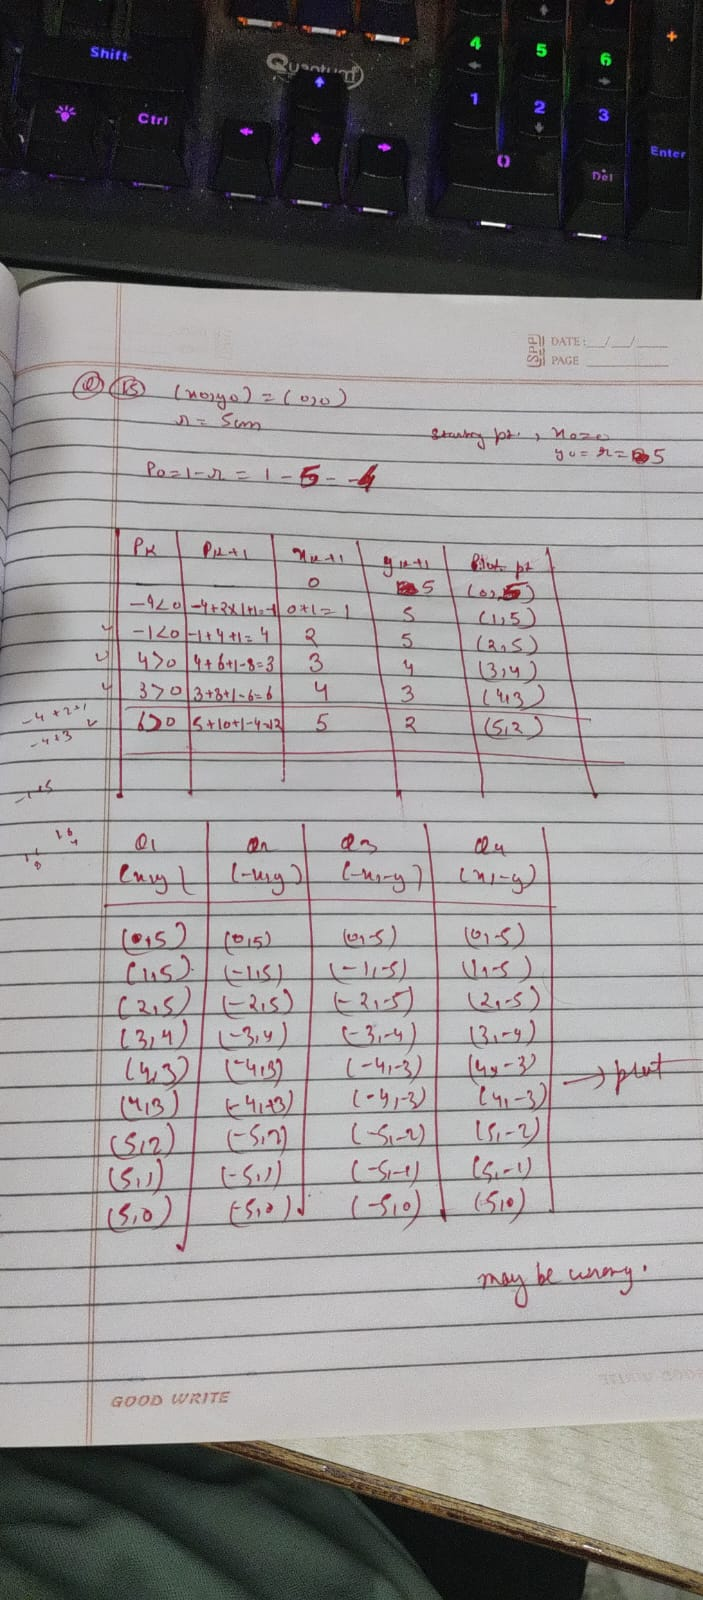 Shift
Ctrl
Quantum
4 5 6 +
1 2 3
0 Del Enter
DATE: __/__/__
SPP PAGE
Q 15 (x0,y0) = (0,0)
r = 5cm
starting pt. , x0=0
y0 = r = 5
P0 = 1-r = 1-5 = -4
PK PK+1 xK+1 yK+1 Plot pt
0 5 (0,5)
-4<0 -4+2x1+1=-1 0+1=1 5 (1,5)
-1<0 -1+4+1=4 2 5 (2,5)
4>0 4+6+1-8=3 3 4 (3,4)
3>0 3+8+1-6=6 4 3 (4,3)
6>0 5+10+1-4=12 5 2 (5,2)
-4+2+1
-4+3
Q1 Q2 Q3 Q4
(x,y) (-x,y) (-x,-y) (x,-y)
(0,5) (0,5) (0,-5) (0,-5)
(1,5) (-1,5) (-1,-5) (1,-5)
(2,5) (-2,5) (-2,-5) (2,-5)
(3,4) (-3,4) (-3,-4) (3,-4)
(4,3) (-4,3) (-4,-3) (4,-3)
(4,3) (-4,+3) (-4,-3) (4,-3) → plot
(5,2) (-5,2) (-5,-2) (5,-2)
(5,1) (-5,1) (-5,-1) (5,-1)
(5,0) (-5,0) (-5,0) (5,0)
may be wrong.
GOOD WRITE